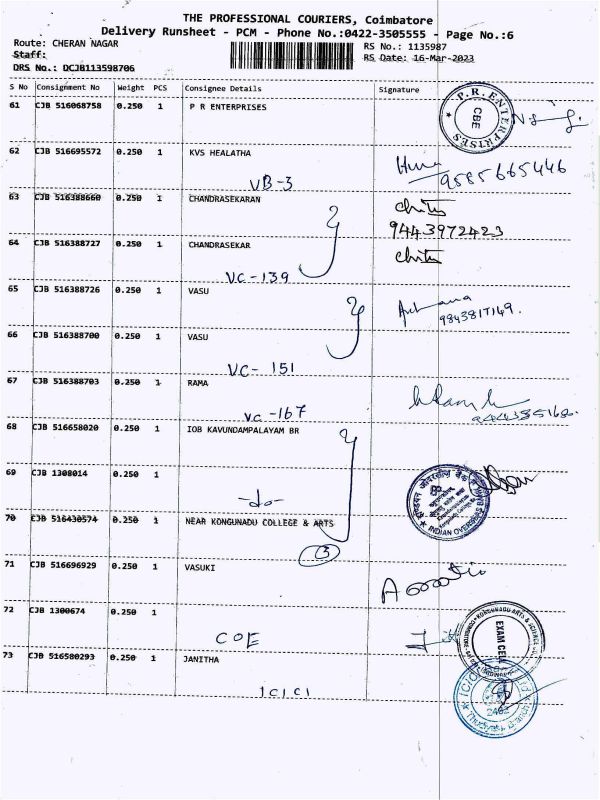 THE PROFESSIONAL COURIERS, Coimbatore
Delivery Runsheet - PCM - Phone No.:0422-3505555 - Page No.:6
Route: CHERAN NAGAR
RS No.: 1135987
Staff:
RS Date: 16-Mar-2023
DRS No.: DCJB113598706
S No Consignment No Weight PCS Consignee Details Signature
61 CJB 516068758 0.250 1 P R ENTERPRISES
P.R. ENTERPRISES CBE
62 CJB 516695572 0.250 1 KVS HEALATHA
9585665446
VB-3
63 CJB 516388660 0.250 1 CHANDRASEKARAN
9443972423
64 CJB 516388727 0.250 1 CHANDRASEKAR
VC-139
65 CJB 516388726 0.250 1 VASU
66 CJB 516388700 0.250 1 VASU
VC- 151
67 CJB 516388703 0.250 1 RAMA
VC-167
68 CJB 516658020 0.250 1 IOB KAVUNDAMPALAYAM BR
69 CJB 1308014 0.250 1
-do-
INDIAN OVERSEAS
70 CJB 516430574 0.250 1 NEAR KONGUNADU COLLEGE & ARTS
3
71 CJB 516696929 0.250 1 VASUKI
72 CJB 1300674 0.250 1
COE
EXAM CELL
73 CJB 516580293 0.250 1 JANITHA
ICICI